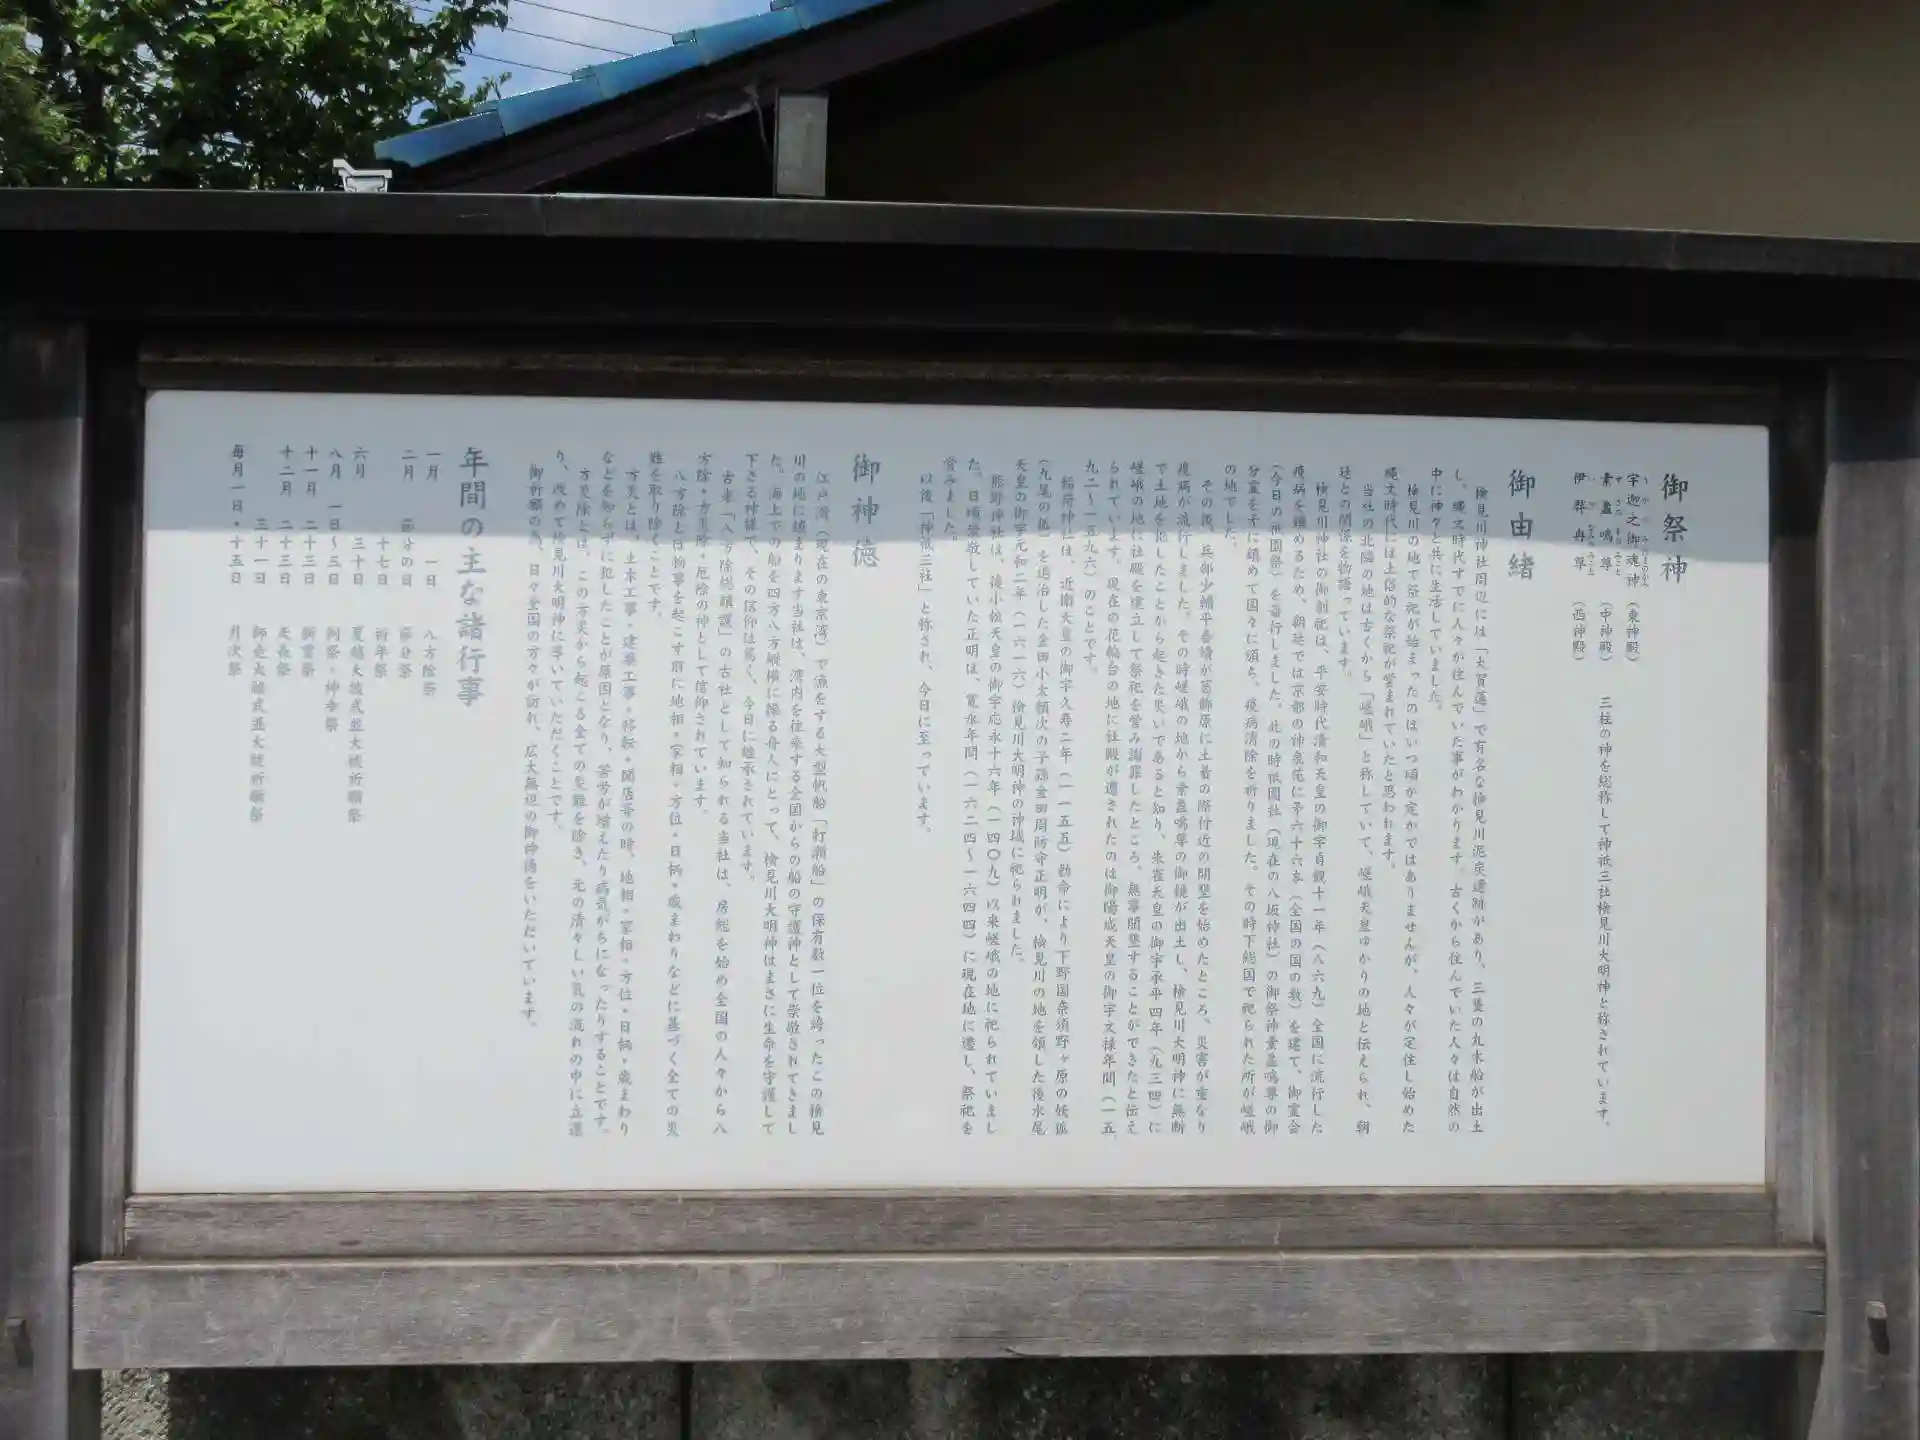 御祭神
宇迦之御魂神（東神殿）
素盞嗚尊（中神殿）　三柱の神を総称して神祇三社検見川大明神と称されています。
伊弉冉尊（西神殿）
御由緒
検見川神社周辺には「大賀蓮」で有名な検見川泥炭遺跡があり、三隻の丸木船が出土
し、縄文時代すでに人々が住んでいた事がわかります。古くから住んでいた人々は自然の
中に神々と共に生活していました。
検見川の地で祭祀が始まったのはいつ頃か定かではありませんが、人々が定住し始めた
縄文時代には土俗的な祭祀が営まれていたと思われます。
当社の北隣の地は古くから「嵯峨」と称していて、嵯峨天皇ゆかりの地と伝えられ、朝
廷との関係を物語っています。
検見川神社の御創祀は、平安時代清和天皇の御宇貞観十一年（八六九）全国に流行した
疫病を鎮めるため、朝廷では京都の神泉苑に矛六十六本（全国の国の数）を建て、御霊会
（今日の祇園祭）を斎行しました。此の時祇園社（現在の八坂神社）の御祭神素盞嗚尊の御
分霊を矛に鎮めて国々に頒ち、疫病消除を祈りました。その時下総国で祀られた所が嵯峨
の地でした。
その後、兵部少輔平春績が葛飾原に土着の際付近の開墾を始めたところ、災害が重なり
疫癘が流行しました。その時嵯峨の地から素盞嗚尊の御鏡が出土し、検見川大明神に無断
で土地を犯したことから起きた災いであると知り、朱雀天皇の御宇承平四年（九三四）に
嵯峨の地に社殿を建立して祭祀を営み謝罪したところ、無事開墾することができたと伝え
られています。現在の花輪台の地に社殿が遷されたのは御陽成天皇の御宇文禄年間（一五
九二～一五九六）のことです。
稲荷神社は、近衛天皇の御宇久寿二年（一一五五）勅命により下野国奈須野ヶ原の妖狐
（九尾の狐）を退治した金田小太頼次の子孫金田周防守正明が、検見川の地を領した後水尾
天皇の御宇元和二年（一六一六）検見川大明神の神域に祀られました。
熊野神社は、後小松天皇の御宇応永十六年（一四〇九）以来嵯峨の地に祀られていまし
た。日頃崇敬していた正明は、寛永年間（一六二四～一六四四）に現在地に遷し、祭祀を
営みました。
以後「神祇三社」と称され、今日に至っています。
御神徳
江戸湾（現在の東京湾）で漁をする大型帆船「打瀬船」の保有数一位を誇ったこの検見
川の地に鎮まります当社は、湾内を往来する全国からの船の守護神として崇敬されてきまし
た。海上での船を四方八方縦横に操る舟人にとって、検見川大明神はまさに生命を守護して
下さる神様で、その信仰は篤く、今日に継承されています。
古来「八方除総鎮護」の古社として知られる当社は、房総を始め全国の人々から八
方除・方災除・厄除の神として信仰されています。
八方除とは物事を起こす前に地相・家相・方位・日柄・歳まわりなどに基づく全ての災
難を取り除くことです。
方災とは、土木工事・建築工事・移転・開店等の時、地相・家相・方位・日柄・歳まわり
などを知らずに犯したことが原因となり、苦労が増えたり病気がちになったりすることです。
方災除とは、この方災から起こる全ての災難を除き、元の清々しい気の流れの中に立還
り、改めて検見川大明神に導いていただくことです。
御祈願の為、日々全国の方々が訪れ、広大無辺の御神徳をいただいています。
年間の主な諸行事
一月　一日　八方除祭
二月　節分の日　節分祭
十七日　祈年祭
六月　三十日　夏越大祓式並大祓祈願祭
八月　一日～三日　例祭・神幸祭
十一月　二十三日　新嘗祭
十二月　二十三日　天長祭
三十一日　師走大祓式並大祓祈願祭
毎月一日・十五日　月次祭